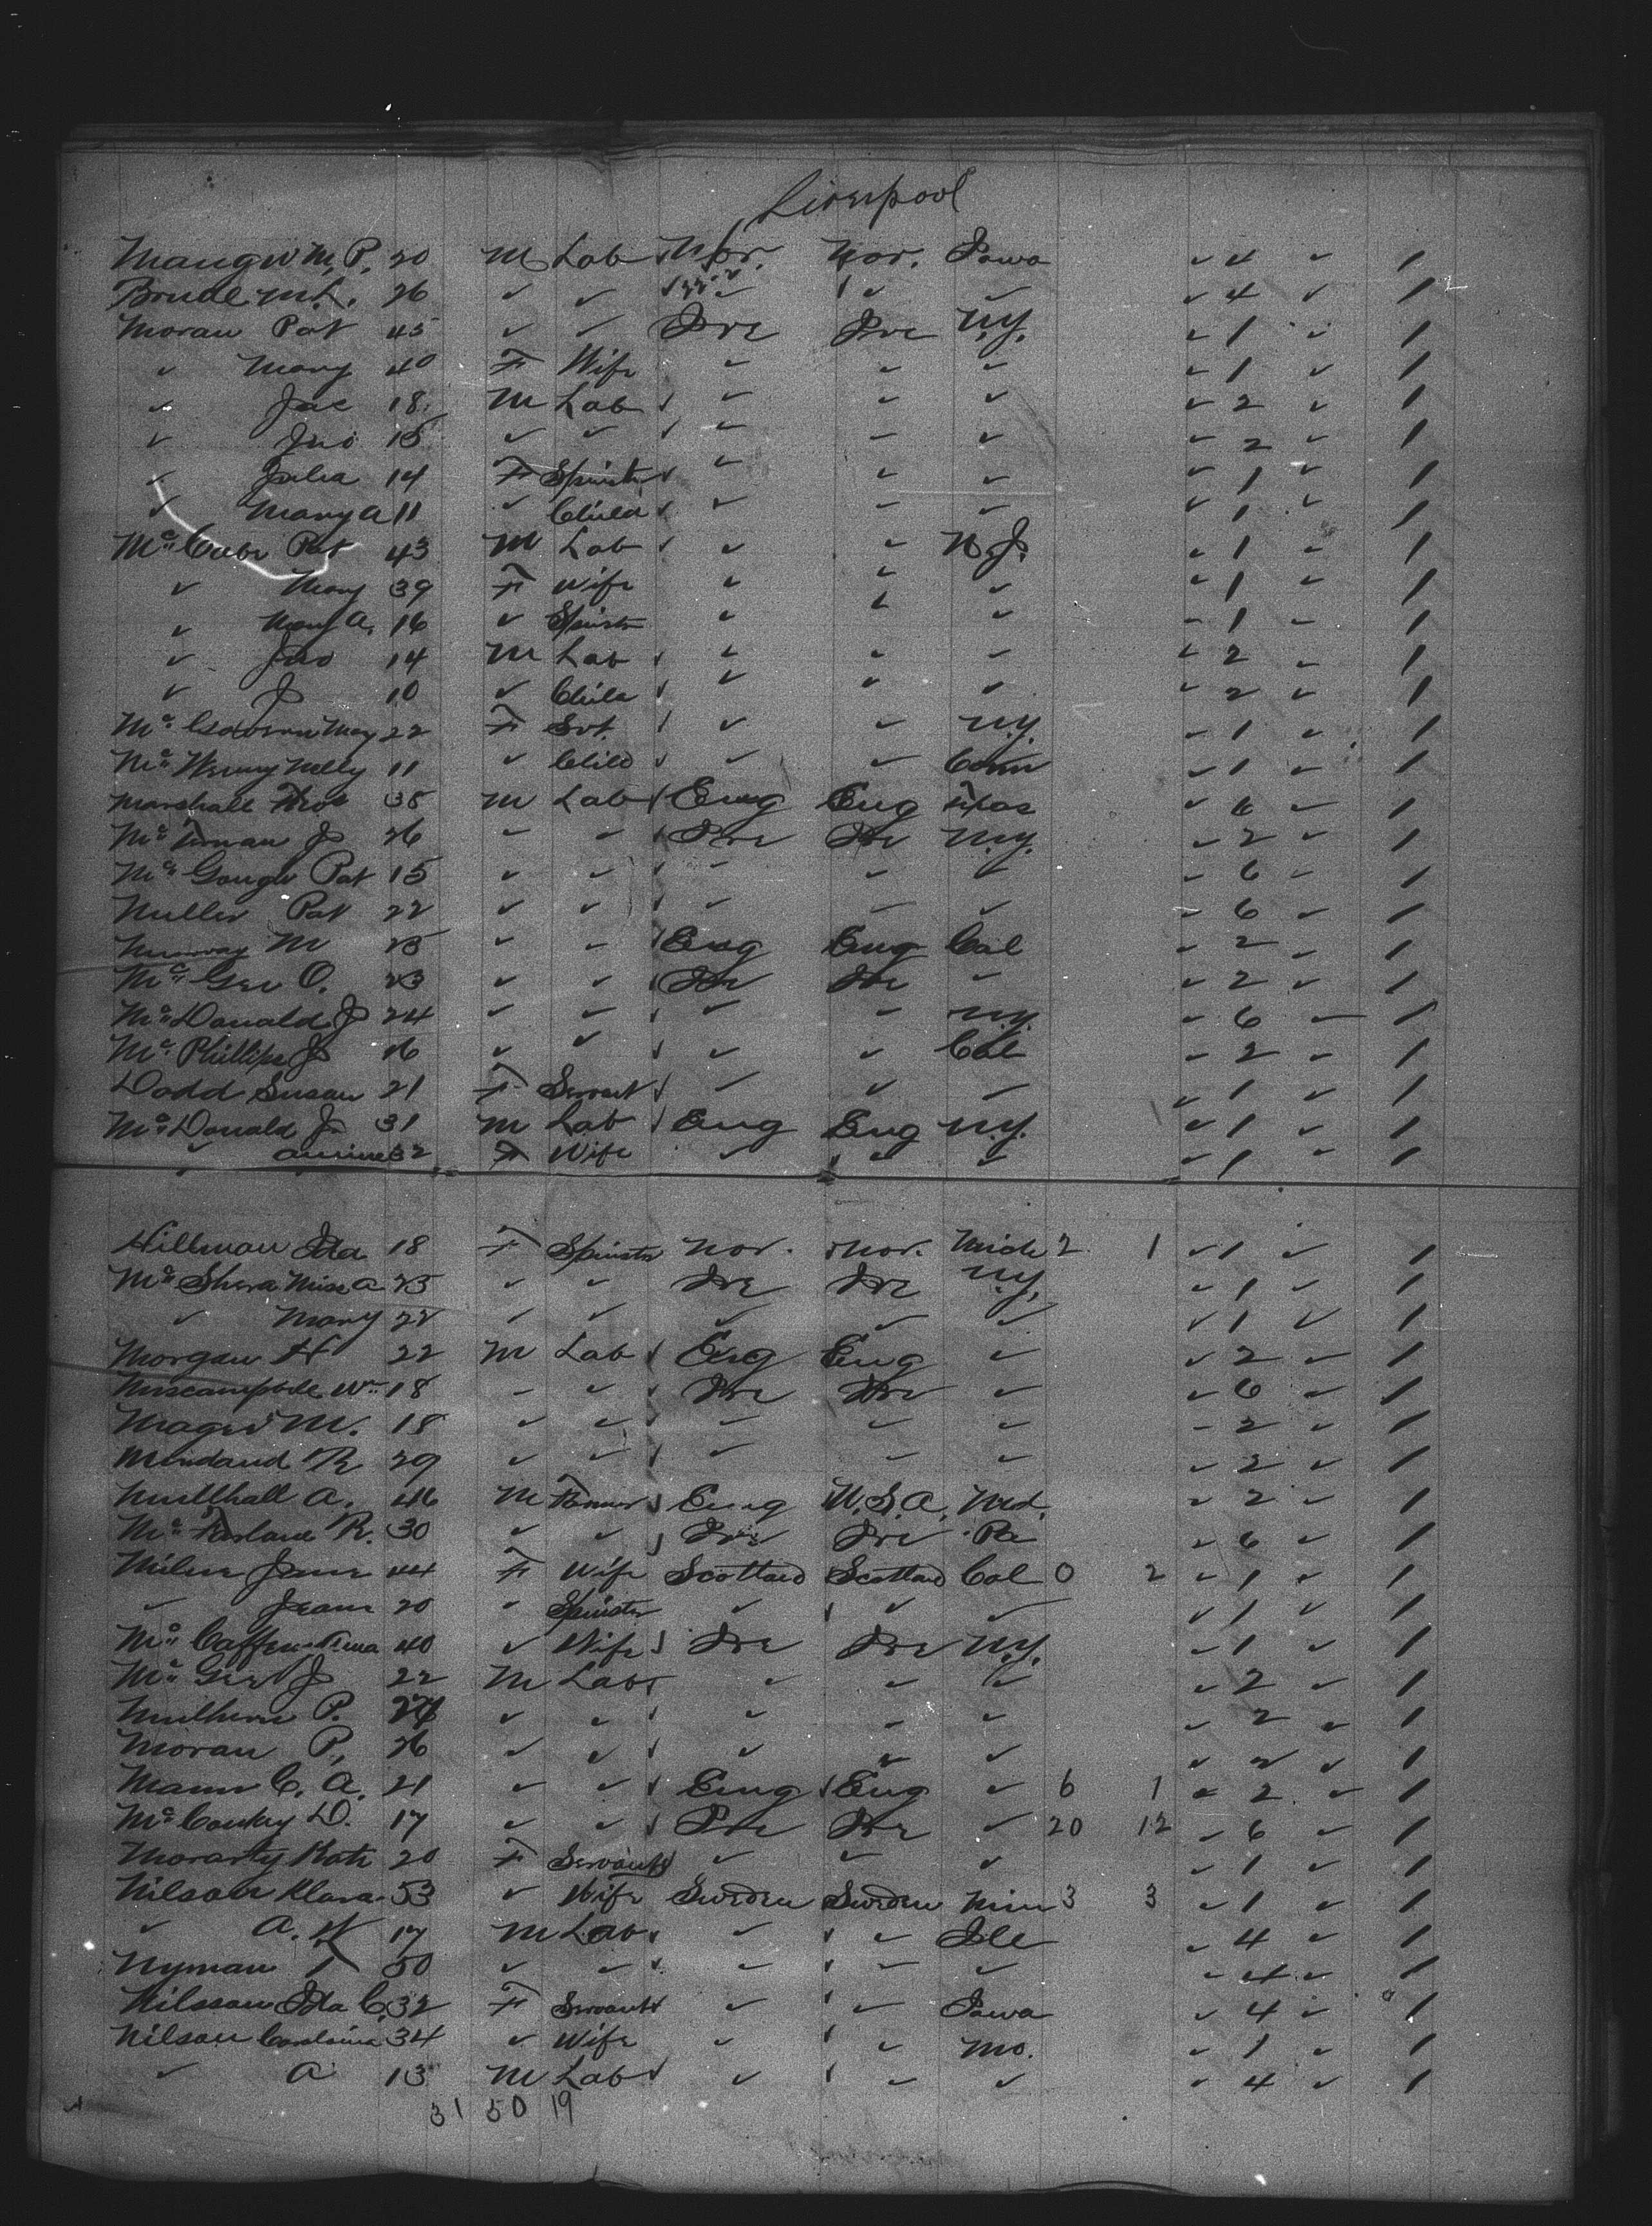 Liverpool
M.P. 20 M Lab Nor. Nor. Iowa ✓ 4 ✓ 1
M.L. 26 ✓ ✓ ✓ ✓ ✓ ✓ 4 ✓ 1
Moran Pat 45 ✓ ✓ Ire Ire N.Y. ✓ 1 ✓ 1
✓ Mary 40 F Wife ✓ ✓ ✓ ✓ 1 ✓ 1
✓ Jas 18 M Lab ✓ ✓ ✓ ✓ 2 ✓ 1
✓ Jno 15 ✓ ✓ ✓ ✓ ✓ ✓ 2 ✓ 1
✓ Julia 14 F Spinster ✓ ✓ ✓ ✓ 1 ✓ 1
✓ Mary A 11 ✓ Child ✓ ✓ ✓ ✓ 1 ✓ 1
McCabe Pat 43 M Lab ✓ ✓ N.J. ✓ 1 ✓ 1
✓ Mary 39 F Wife ✓ ✓ ✓ ✓ 1 ✓ 1
✓ Mary A. 16 ✓ Spinster ✓ ✓ ✓ ✓ 1 ✓ 1
✓ Jno 14 M Lab ✓ ✓ ✓ ✓ 2 ✓ 1
✓ J 10 ✓ Child ✓ ✓ ✓ ✓ 2 ✓ 1
Mary 22 F Svt. ✓ ✓ N.Y. ✓ 1 ✓ 1
Nelly 11 ✓ Child ✓ ✓ Conn ✓ 1 ✓ 1
Marshall Thos 38 M Lab Eng Eng ✓ 6 ✓ 1
J 26 ✓ ✓ Ire Ire N.Y. ✓ 2 ✓ 1
Pat 15 ✓ ✓ ✓ ✓ ✓ ✓ 6 ✓ 1
Pat 22 ✓ ✓ ✓ ✓ ✓ ✓ 6 ✓ 1
Murray M 25 ✓ ✓ Eng Eng Cal ✓ 2 ✓ 1
McGee O. 23 ✓ ✓ Ire Ire ✓ ✓ 2 ✓ 1
McDonald J 24 ✓ ✓ ✓ ✓ N.Y. ✓ 6 ✓ 1
McPhillips J 16 ✓ ✓ ✓ ✓ Cal ✓ 2 ✓ 1
Dodd Susan 21 F Servant ✓ ✓ ✓ ✓ 1 ✓ 1
McDonald J 31 M Lab Eng Eng N.Y. ✓ 1 ✓ 1
✓ Annine 32 F Wife ✓ ✓ ✓ ✓ 1 ✓ 1
Hillman Ida 18 F Spinster Nor. Nor. Mich 2 1 ✓ 1 ✓ 1
McShera Miss A 25 ✓ ✓ Ire Ire N.Y. ✓ 1 ✓ 1
✓ Mary 22 ✓ ✓ ✓ ✓ ✓ ✓ 1 ✓ 1
Morgan H 22 M Lab Eng Eng ✓ ✓ 2 ✓ 1
Miscampbell Wm 18 ✓ ✓ Ire Ire ✓ ✓ 6 ✓ 1
M. 18 ✓ ✓ ✓ ✓ ✓ ✓ 2 ✓ 1
R 29 ✓ ✓ ✓ ✓ ✓ ✓ 2 ✓ 1
Mullhall A. 46 M Farmer Eng U.S.A. Md. ✓ 2 ✓ 1
McFarlane R. 30 ✓ ✓ Ire Ire Pa ✓ 6 ✓ 1
Milne Jane 44 F Wife Scotland Scotland Cal 0 2 ✓ 1 ✓ 1
✓ Jeane 20 ✓ Spinster ✓ ✓ ✓ ✓ 1 ✓ 1
40 ✓ Wife Ire Ire N.Y. ✓ 1 ✓ 1
McGee J 22 M Lab ✓ ✓ ✓ ✓ 2 ✓ 1
P. ✓ ✓ ✓ ✓ ✓ ✓ 2 ✓ 1
Moran P, 26 ✓ ✓ ✓ ✓ ✓ ✓ 2 ✓ 1
Mann C. A. 21 ✓ ✓ Eng Eng ✓ 6 1 ✓ 2 ✓ 1
McConkey D. 17 ✓ ✓ Ire Ire ✓ 20 12 ✓ 6 ✓ 1
Morarty Kate 20 F Servant ✓ ✓ ✓ ✓ 1 ✓ 1
Nilson Klara 53 ✓ Wife Sweden Sweden Minn 3 3 ✓ 1 ✓ 1
✓ A. W 17 M Lab ✓ ✓ Ill ✓ 4 ✓ 1
Nyman T 50 ✓ ✓ ✓ ✓ ✓ ✓ 4 ✓ 1
Nilsson Ida C. 32 F Servant ✓ ✓ Iowa ✓ 4 ✓ 1
Nilson Carolina 34 ✓ Wife ✓ ✓ Mo. ✓ 1 ✓ 1
✓ A 13 M Lab ✓ ✓ ✓ ✓ 4 ✓ 1
31 50 19